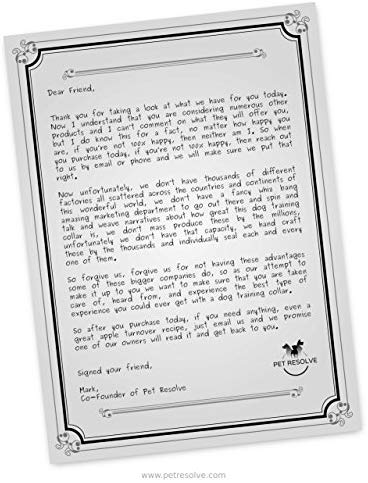 Dear Friend,
Thank you for taking a look at what we have for you today.
Now I understand that you are considering numerous other
products and I can't comment on what they will offer you,
but I do know this for a fact, no matter how happy you
are, if you're not 100% happy, then neither am I. So when
you purchase today, if you're not 100% happy, then reach out
to us by email or phone and we will make sure we put that
right.
Now unfortunately, we don't have thousands of different
factories all scattered across the countries and continents of
this wonderful world, we don't have a fancy whiz bang
amazing marketing department to go out there and spin and
talk and weave narratives about how great this dog training
collar is, we don't mass produce these by the millions,
unfortunately we don't have that capacity, we hand craft
these by the thousands and individually seal each and every
one of them.
So forgive us, forgive us for not having these advantages
some of these bigger companies do, so as our attempt to
make it up to you we want to make sure that you are taken
care of, heard from, and experience the best type of
experience you could ever get with a dog training collar.
So after you purchase today, if you need anything, even a
great apple turnover recipe, just email us and we promise
one of our owners will read it and get back to you.
Signed your friend,
Mark,
Co-Founder of Pet Resolve
PET RESOLVE
www.petresolve.com